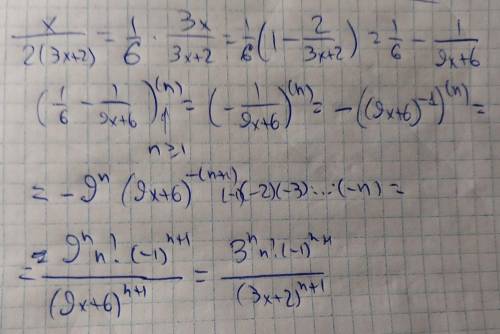 x/(2(3x+2)) = 1/6 · 3x/(3x+2) = 1/6 (1 - 2/(3x+2)) = 1/6 - 1/(9x+6)
(1/6 - 1/(9x+6))^(n) = (- 1/(9x+6))^(n) = -((9x+6)^-1)^(n) =
↑
n≥1
= -9^n (9x+6)^-(n+1) (-1)(-2)(-3)·...·(-n) =
= 9^n n! · (-1)^n+1 / (9x+6)^n+1 = 3^n n! · (-1)^n+1 / (3x+2)^n+1